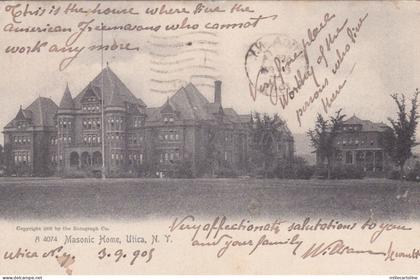 This is the house where live the
american Freemasons who cannot
work any more.
Very fine place
Worthy of the
persons who live
there
Copyright 1905 by the Rotograph Co.
A 4074 Masonic Home, Utica, N. Y.
Very affectionate salutations to you
and your family
Utica N. Y. 3.9.905